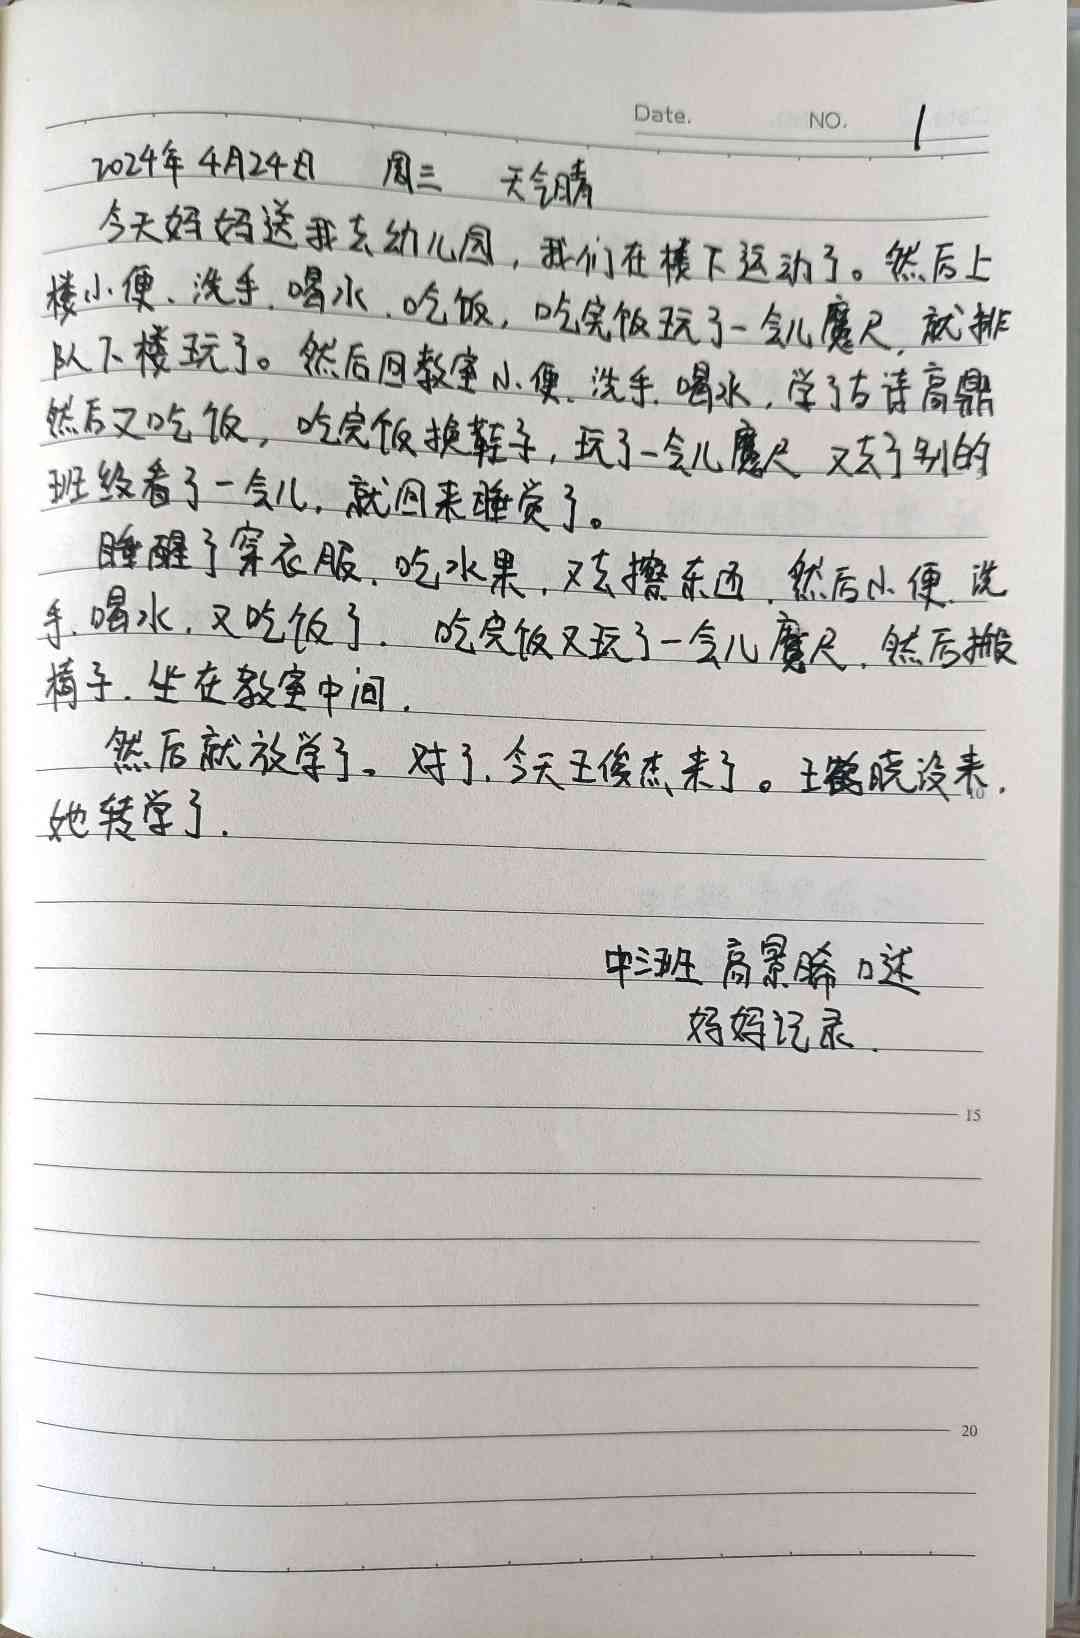 Date. NO. 1
2024年4月24日 周三 天气晴
今天妈妈送我去幼儿园,我们在楼下运动了。然后上
楼小便、洗手、喝水、吃饭,吃完饭玩了一会儿魔尺,就排
队下楼玩了。然后回教室小便、洗手、喝水,学了古诗高鼎
然后又吃饭,吃完饭换鞋子,玩了一会儿魔尺 又去了别的
班级看了一会儿,就回来睡觉了。
睡醒了穿衣服、吃水果,又去擦东西,然后小便、洗
手、喝水,又吃饭了. 吃完饭又玩了一会儿魔尺,然后搬
椅子.坐在教室中间.
然后就放学了。对了,今天王俊杰来了。王鹤晓没来,
10
她转学了.
中三班 高景晞 口述
妈妈记录.
15
20